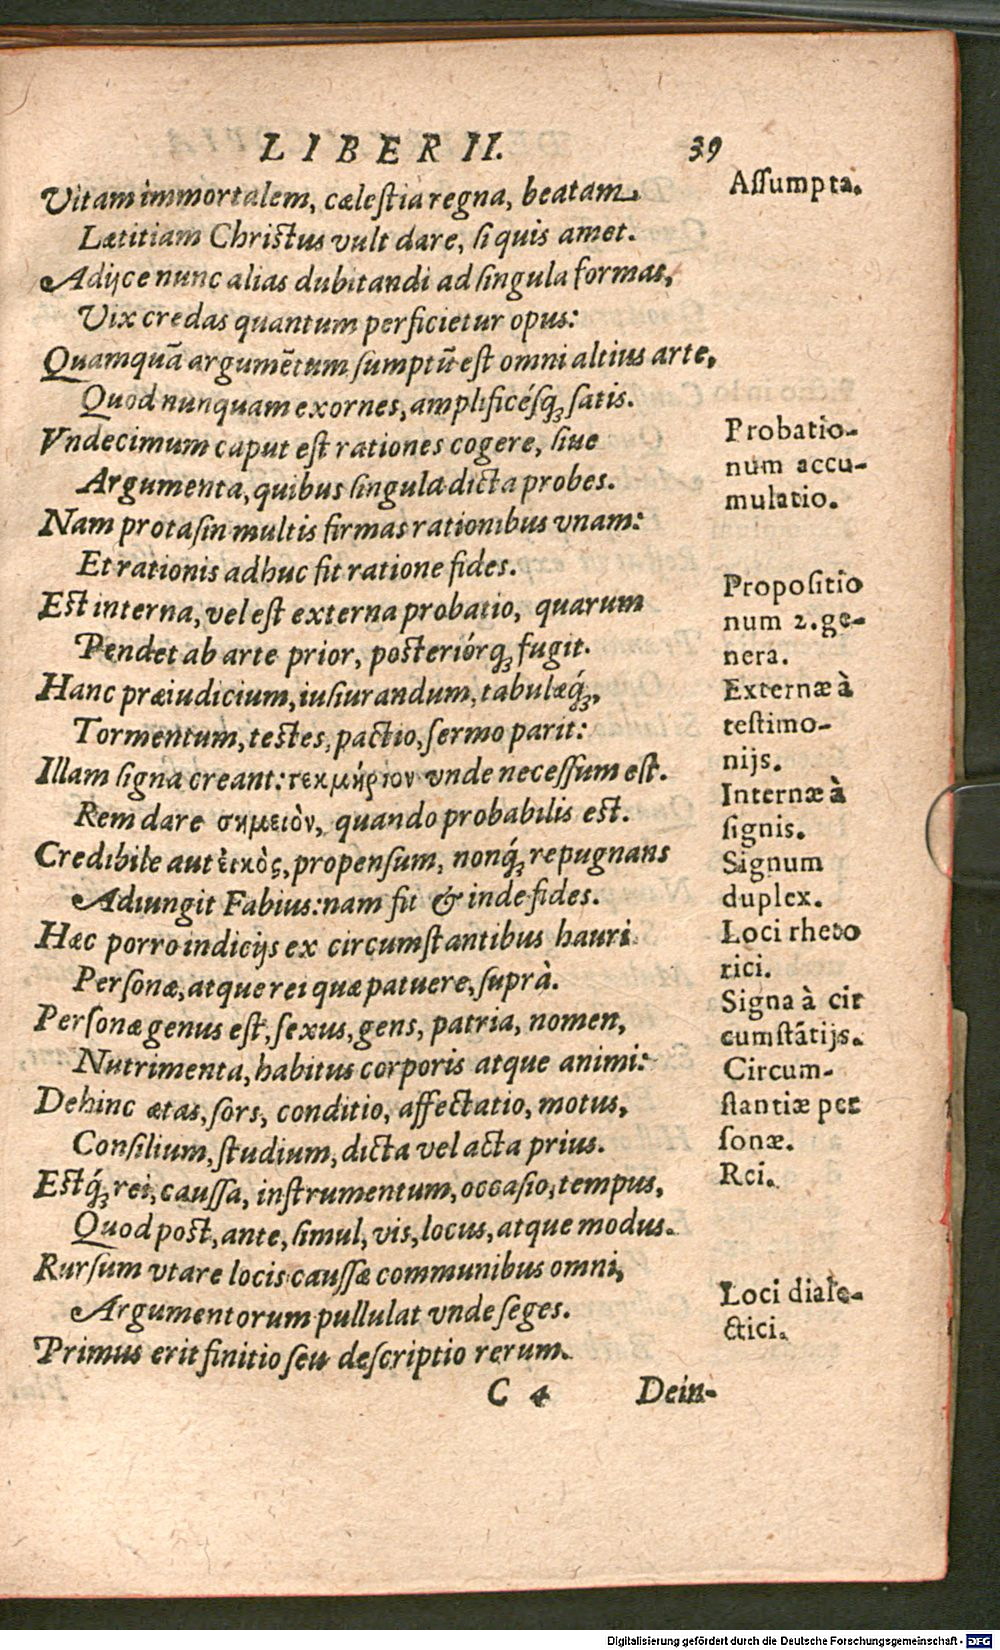 LIBER II. 39
Vitam immortalem, cæleſtia regna, beatam,
Lætitiam Chriſtus vult dare, ſi quis amet.
Adijce nunc alias dubitandi ad ſingula formas,
Vix credas quantum perficietur opus:
Quamquā argumētum ſumptū eſt omni altius arte,
Quod nunquam exornes, amplificéſq́; ſatis.
Vndecimum caput eſt rationes cogere, ſiue
Argumenta, quibus ſingula dicta probes.
Nam protaſin multis firmas rationibus vnam:
Et rationis adhuc fit ratione fides.
Eſt interna, vel eſt externa probatio, quarum
Pendet ab arte prior, poſteriórq; fugit.
Hanc præiudicium, iuſiurandum, tabulæq́;,
Tormentum, teſtes, pactio, ſermo parit:
Illam ſigna creant: τεκμήριον vnde neceſſum eſt.
Rem dare σημειὸν, quando probabilis eſt.
Credibile aut ἐικὸς, propenſum, nonq́; repugnans
Adiungit Fabius: nam fit & inde fides.
Hæc porro indicijs ex circumſtantibus hauri
Perſonæ, atque rei quæ patuere, ſuprà.
Perſonæ genus eſt, ſexus, gens, patria, nomen,
Nutrimenta, habitus corporis atque animi:
Dehinc ætas, ſors, conditio, affectatio, motus,
Conſilium, ſtudium, dicta vel acta prius.
Eſtq́; rei, cauſſa, inſtrumentum, occaſio, tempus,
Quod poſt, ante, ſimul, vis, locus, atque modus.
Rurſum vtare locis cauſſæ communibus omni,
Argumentorum pullulat vnde ſeges.
Primus erit finitio ſeu deſcriptio rerum.
C 4 Dein-
Aſſumpta.
Probatio-
num accu-
mulatio.
Propoſitio
num 2. ge-
nera.
Externæ à
teſtimo-
nijs.
Internæ à
ſignis.
Signum
duplex.
Loci rheto
rici.
Signa à cir
cumſtātijs.
Circum-
ſtantiæ per
ſonæ.
Rei.
Loci diale-
ctici.
Digitalisierung gefördert durch die Deutsche Forschungsgemeinschaft - DFG